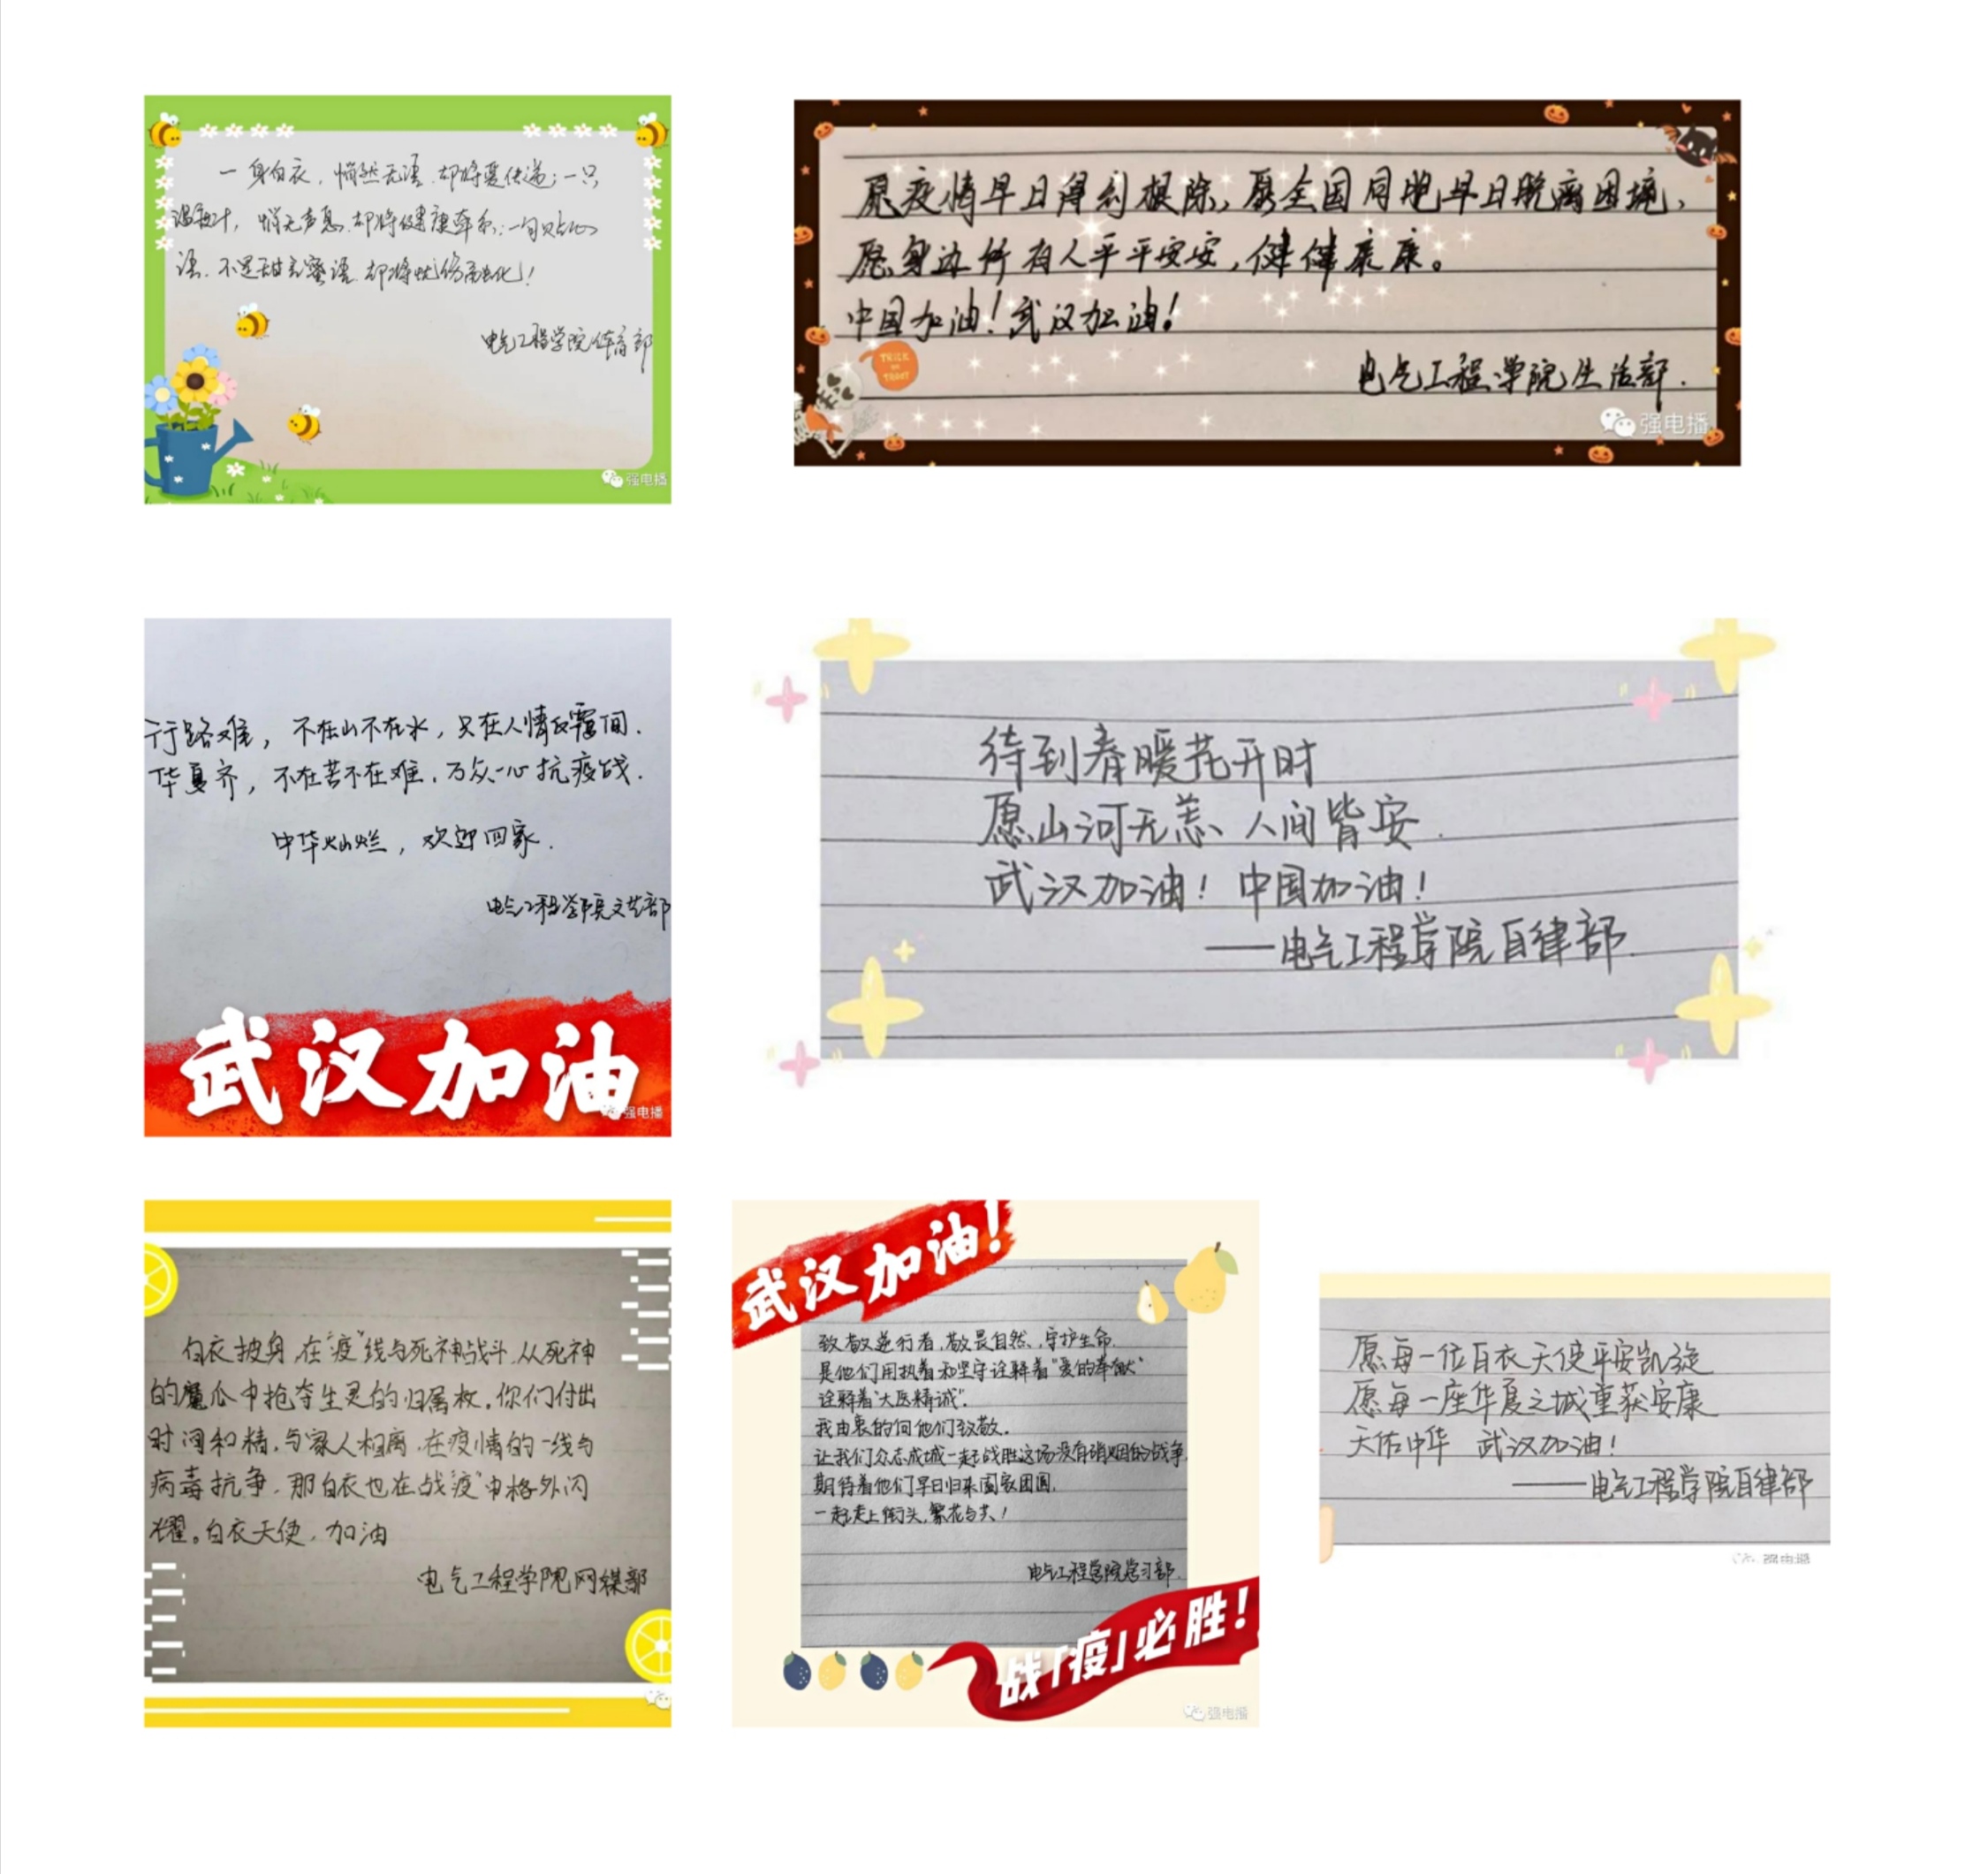 一身白衣，悄然无语，却将爱传递；一只
温度计，悄无声息，却将健康牵系；一句贴心
语，不是甜言蜜语，却将忧伤融化！
电气工程学院体育部
强电播
愿疫情早日得到根除，愿全国同胞早日脱离困境，
愿身边所有人平平安安，健健康康。
中国加油！武汉加油！
TRICK
OR
TREAT
电气工程学院生活部.
强电播
行路难，不在山不在水，只在人情反覆间.
华夏齐，不在苦不在难，万众一心抗疫战.
中华灿烂，欢迎回家.
电气工程学院文艺部
武汉加油
强电播
待到春暖花开时
愿山河无恙、人间皆安.
武汉加油！中国加油！
——电气工程学院自律部.
白衣披身，在“疫”线与死神战斗，从死神
的魔爪中抢夺生灵的归属权。你们付出
时间和精，与家人相离，在疫情的一线与
病毒抗争，那白衣也在战“疫”中格外闪
耀。白衣天使，加油
电气工程学院网媒部
武汉加油！
致敬逆行者，敬畏自然，守护生命.
是他们用执着和坚守诠释着“爱的奉献”
诠释着“大医精诚”.
我由衷的向他们致敬.
让我们众志成城一起战胜这场没有硝烟的战争，
期待着他们早日归来阖家团圆，
一起走上街头，繁花与共！
电气工程学院学习部.
战「疫」必胜！
强电播
愿每一位白衣天使平安凯旋
愿每一座华夏之城重获安康
天佑中华 武汉加油！
——电气工程学院自律部
强电播